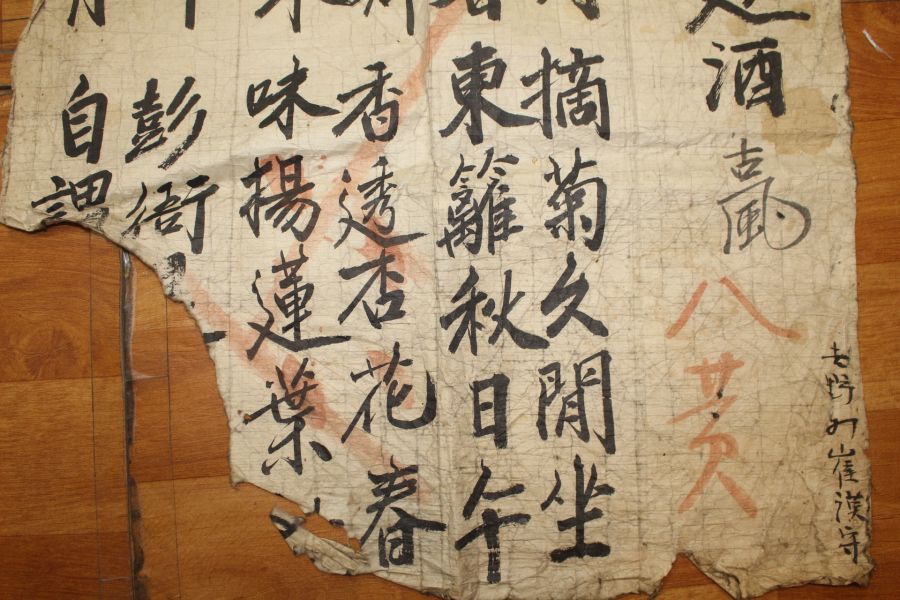 吉野 崔漢守
酒 古風
八
摘菊久閒坐
東籬秋日午
香透杏花春
味揚蓮葉
彭衙
自謂